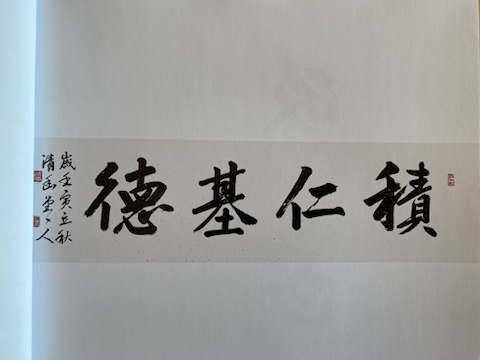 積仁基德
歲壬寅立秋
清函堂主人